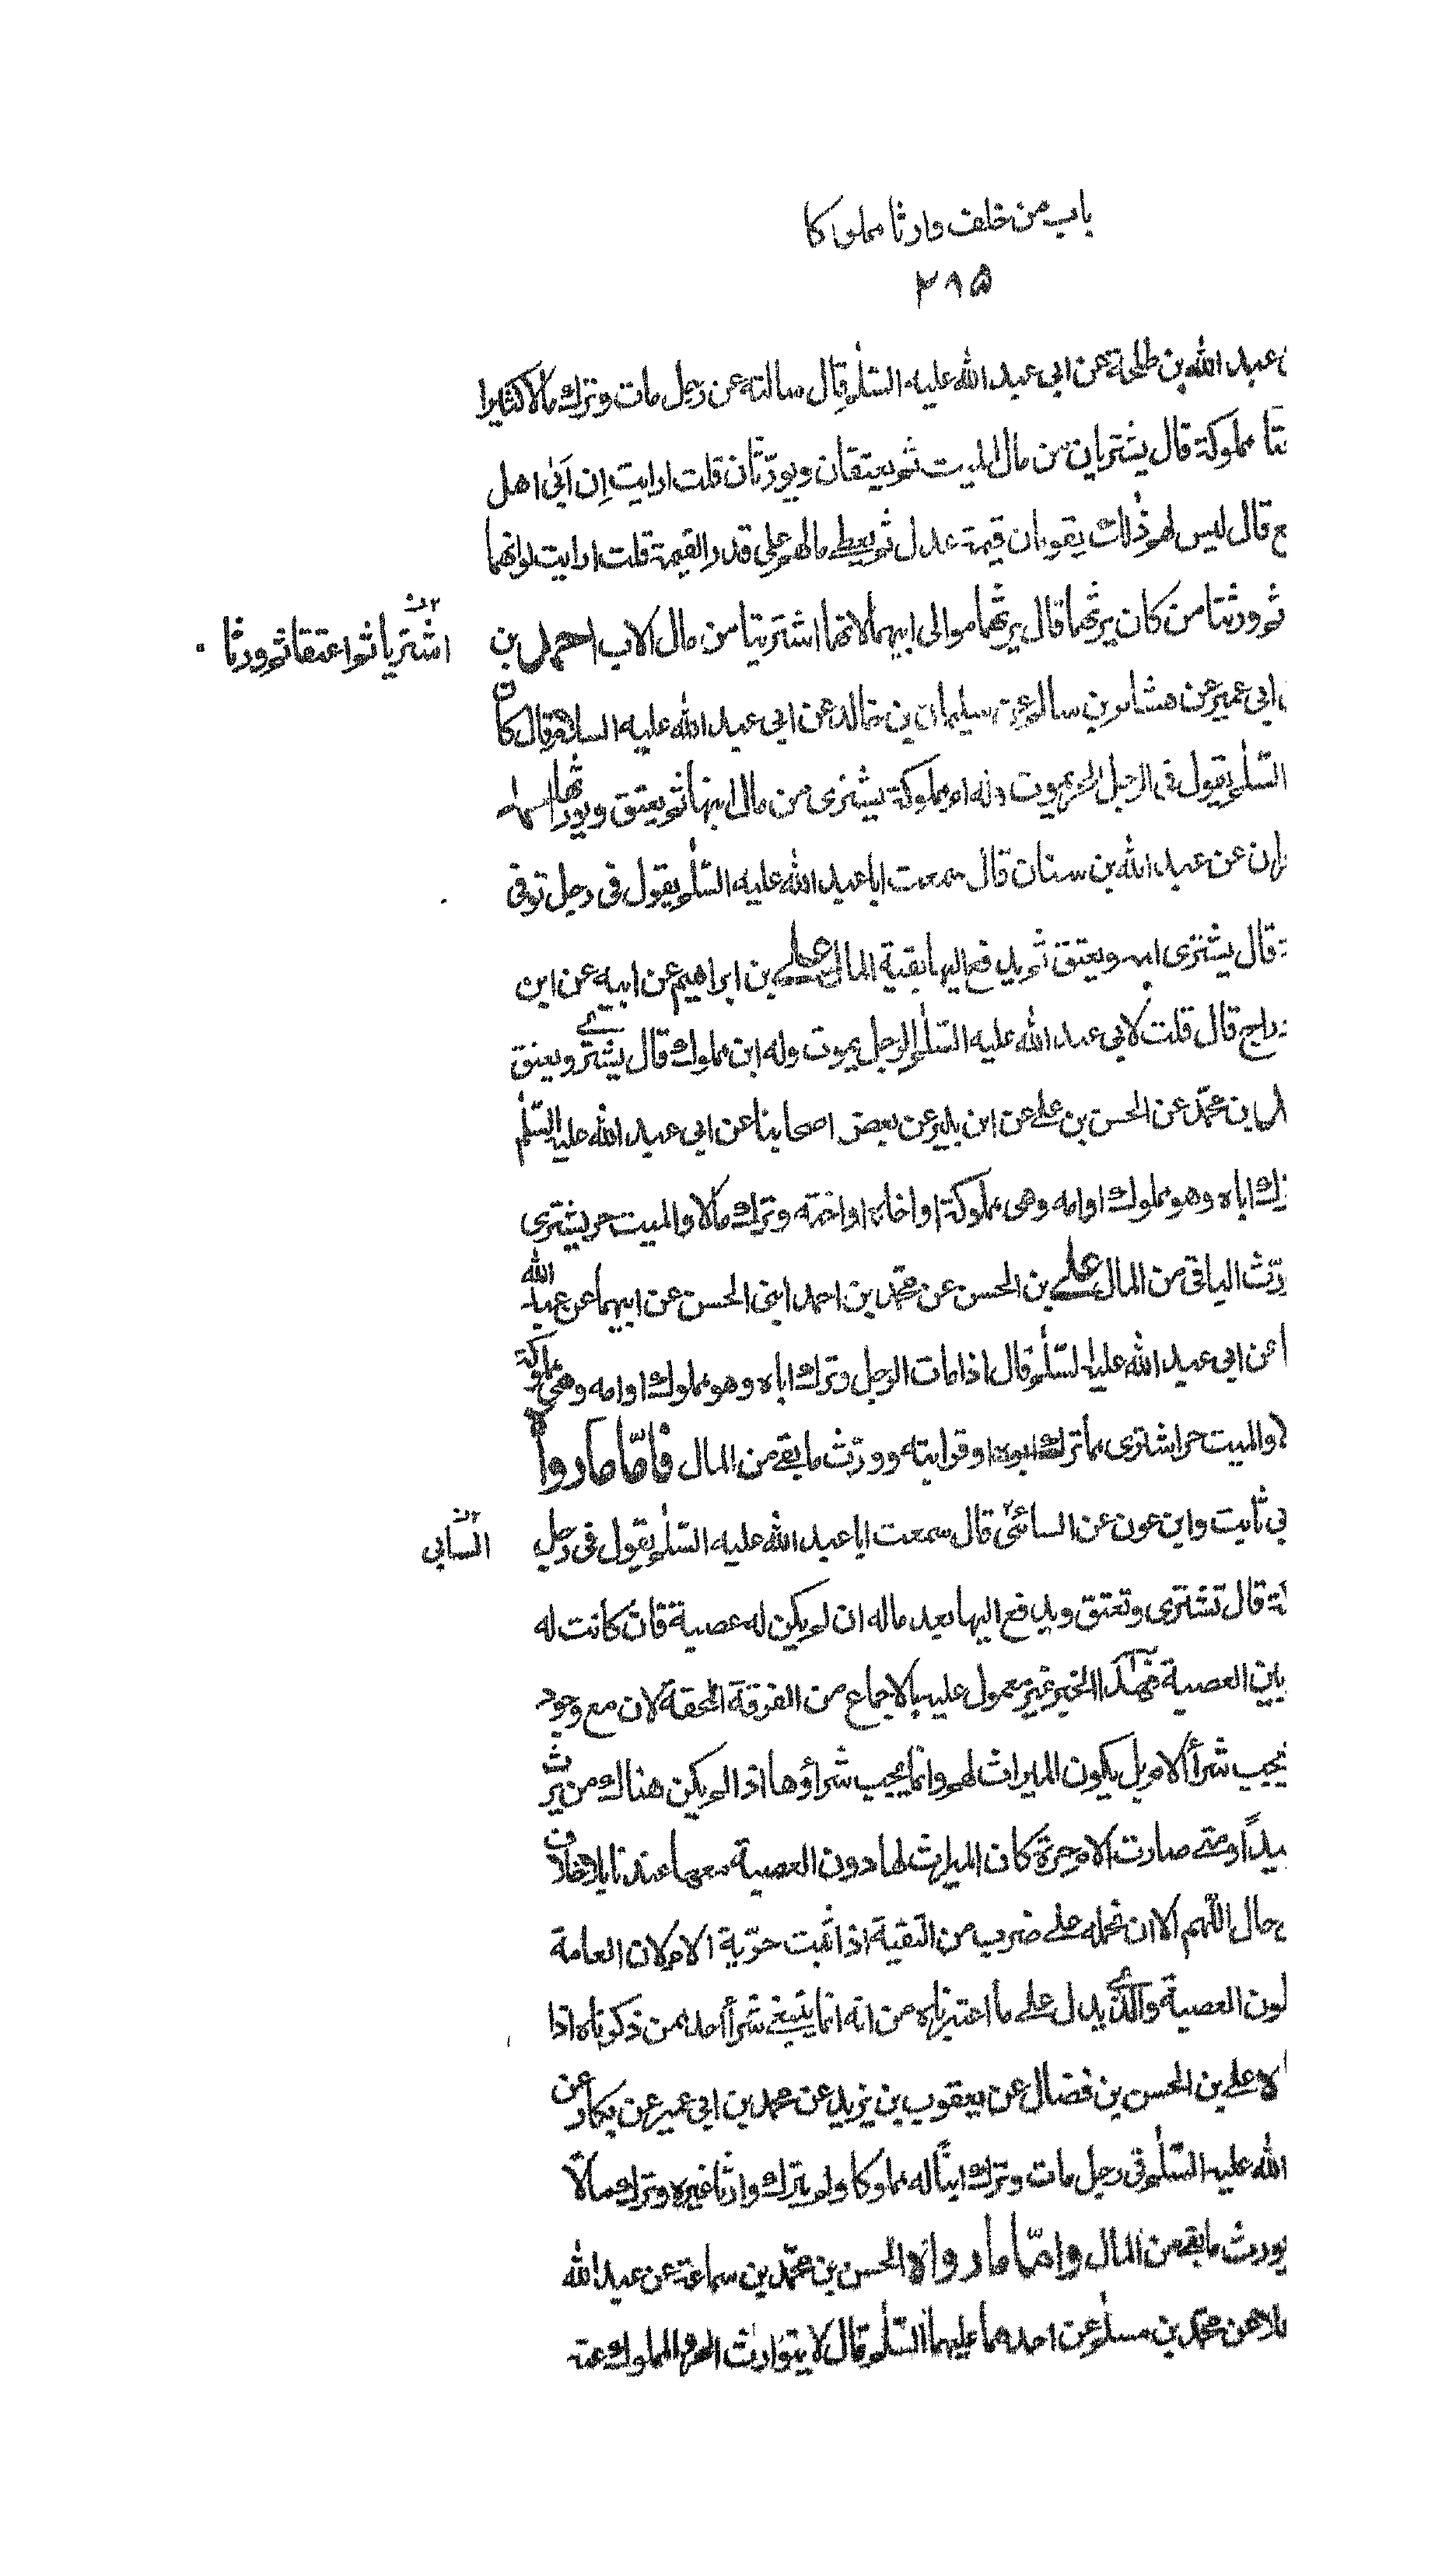 باب من خلف وارثا مملوكا
٢٩٥
عبد الله بن طلحة عن ابي عبد الله عليه السّلم قال سالته عن رجل مات وترك مالا كثيرا
مملوكة قال يشتريان من مال الميت ثم يعتقان ويورّثان قلت ارايت اِن اَبٰى اهل
قال ليس لهم ذلك يقومان قيمة عدل ثم يعطى مالهم على قدر القيمة قلت ارايت لو انهما
ثم ورثتا من كان يرثهما قال يرثهما موالى ابيهما لانهما اشتريتا من مال الاب احمد بن
اشتريا ثم اعتقا ثم ورثا
ابي عمير عن هشام بن سالم عن سليمان بن خالد عن ابي عبد الله عليه السلام قال كان
السّلم يقول في الرجل الحر يموت وله ام مملوكة يشترى من مال ابنها ثم يعتق ويورثها
عن عبد الله بن سنان قال سمعت ابا عبد الله عليه السّلم يقول فى رجل توفى
قال يشترى امه ويعتق ثم يدفع اليها بقية المال على بن ابراهيم عن ابيه عن ابن
قال قلت لابي عبد الله عليه السّلم الرجل يموت وله ابن مملوك قال يشترى ويعتق
بن محمّد عن الحسن بن على عن ابن بكير عن بعض اصحابنا عن ابي عبد الله عليه السّلم
اباه وهو مملوك او امه وهى مملوكة او اخاه او اخته وترك مالا والميت حر يشترى
الباقى من المال على بن الحسن عن محمّد بن احمد ابنى الحسن عن ابيهما عن عبد الله
عن ابي عبد الله عليه السّلم قال اذا مات الرجل وترك اباه وهو مملوك او امه وهى مملوكة
والميت حر اشترى مما ترك ابوه او قرابته وورّث ما بقى من المال فامّا ما رواه
ثابت وابن عون عن السائي قال سمعت ابا عبد الله عليه السّلم يقول فى رجل
السابى
قال تشترى وتعتق ويدفع اليها بعد ماله ان لم يكن له عصبة فان كانت له
بين العصبة فهذا الخبر غير معمول عليه بالاجماع من الفرقة المحقة لان مع وجود
يجب شرأ الام بل يكون الميراث لهم وانما يجب شراؤها اذا لم يكن هناك من يرث
ومتى صارت الام حرة كان الميراث لها دون العصبة معها عندنا بلا خلاف
حال اللّهم الا ان نحمله على ضرب من التقية اذا ثبت حرّية الام لان العامة
العصبة والذى يدل على ما اعتبرناه من انه انما ينبغى شرأ احد ممن ذكرناه اذا
على بن الحسن بن فضال عن يعقوب بن يزيد عن محمد بن ابي عمير عن بكار عن
الله عليه السّلم فى رجل مات وترك ابناً له مملوكا ولم يترك وارثا غيره وترك مالاً
ما بقى من المال وامّا ما رواه الحسن بن محمّد بن سماعة عن عبد الله
عن محمّد بن مسلم عن احدهما عليهما السّلم قال لا يتوارث الحر والمملوك عنه